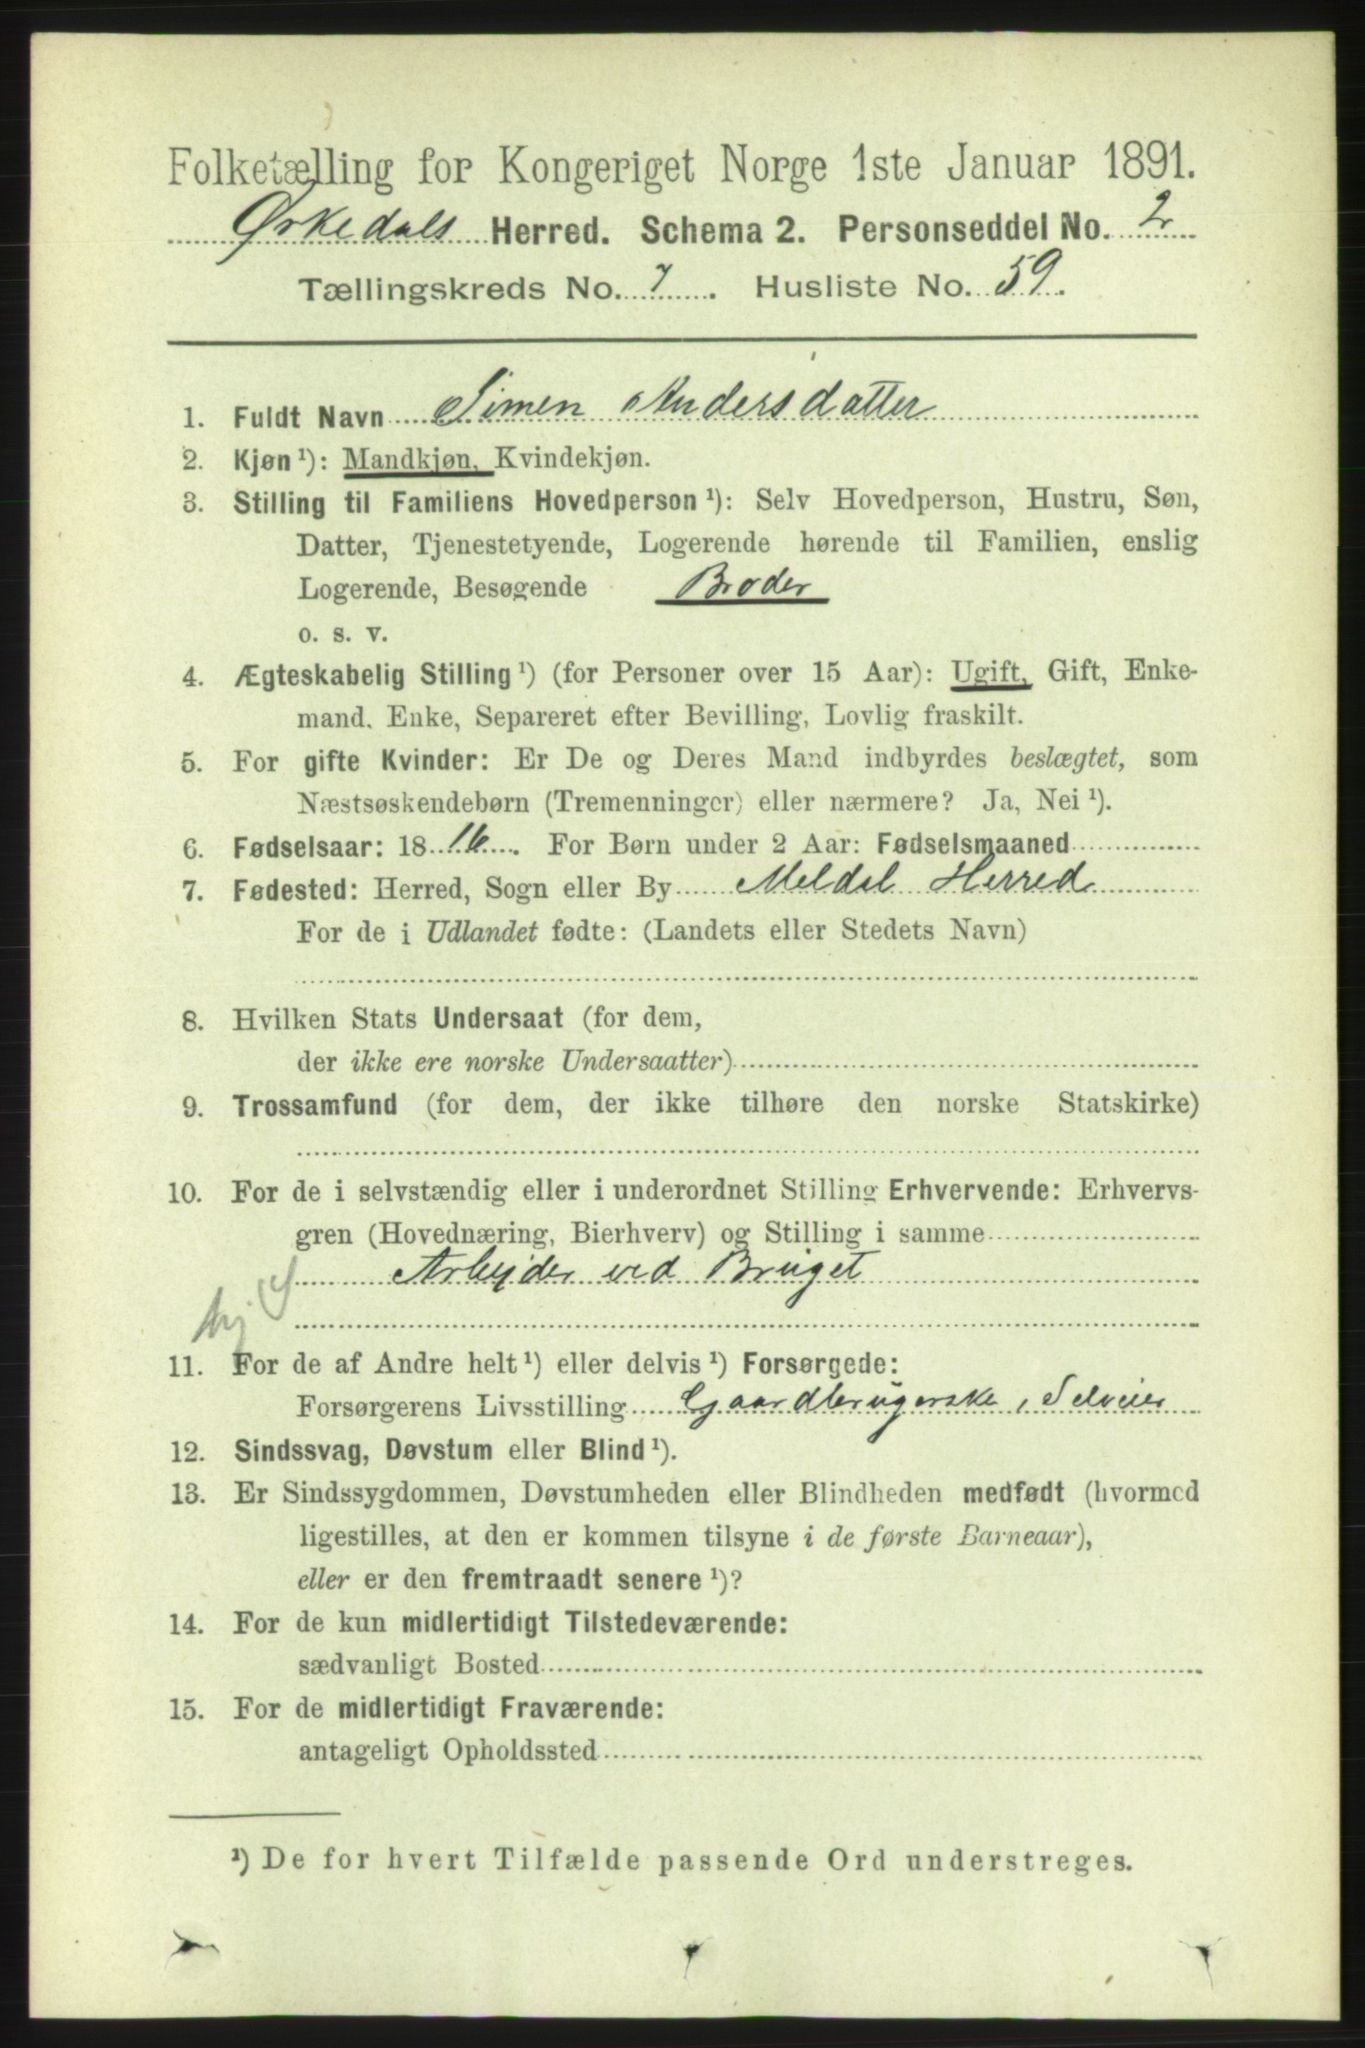 Folketælling for Kongeriget Norge 1ste Januar 1891.
Ørkedals Herred. Schema 2. Personseddel No. 2
Tællingskreds No. 7. Husliste No. 59.
1. Fuldt Navn Simen Andersdatter
2. Kjøn ¹): Mandkjøn, Kvindekjøn.
3. Stilling til Familiens Hovedperson ¹): Selv Hovedperson, Hustru, Søn,
Datter, Tjenestetyende, Logerende hørende til Familien, enslig
Logerende, Besøgende Broder
o. s. v.
4. Ægteskabelig Stilling ¹) (for Personer over 15 Aar): Ugift, Gift, Enke-
mand, Enke, Separeret efter Bevilling, Lovlig fraskilt.
5. For gifte Kvinder: Er De og Deres Mand indbyrdes beslægtet, som
Næstsøskendebørn (Tremenninger) eller nærmere? Ja, Nei ¹).
6. Fødselsaar: 1816. For Børn under 2 Aar: Fødselsmaaned
7. Fødested: Herred, Sogn eller By Meldal Herred
For de i Udlandet fødte: (Landets eller Stedets Navn)
8. Hvilken Stats Undersaat (for dem,
der ikke ere norske Undersaatter)
9. Trossamfund (for dem, der ikke tilhøre den norske Statskirke)
10. For de i selvstændig eller i underordnet Stilling Erhvervende: Erhvervs-
gren (Hovednæring, Bierhverv) og Stilling i samme
Arbejder ved Bruget
11. For de af Andre helt ¹) eller delvis ¹) Forsørgede:
Forsørgerens Livsstilling Gaardbrugerske, Selveier
12. Sindssvag, Døvstum eller Blind ¹).
13. Er Sindssygdommen, Døvstumheden eller Blindheden medfødt (hvormed
ligestilles, at den er kommen tilsyne i de første Barneaar),
eller er den fremtraadt senere ¹)?
14. For de kun midlertidigt Tilstedeværende:
sædvanligt Bosted
15. For de midlertidigt Fraværende:
antageligt Opholdssted
¹) De for hvert Tilfælde passende Ord understreges.